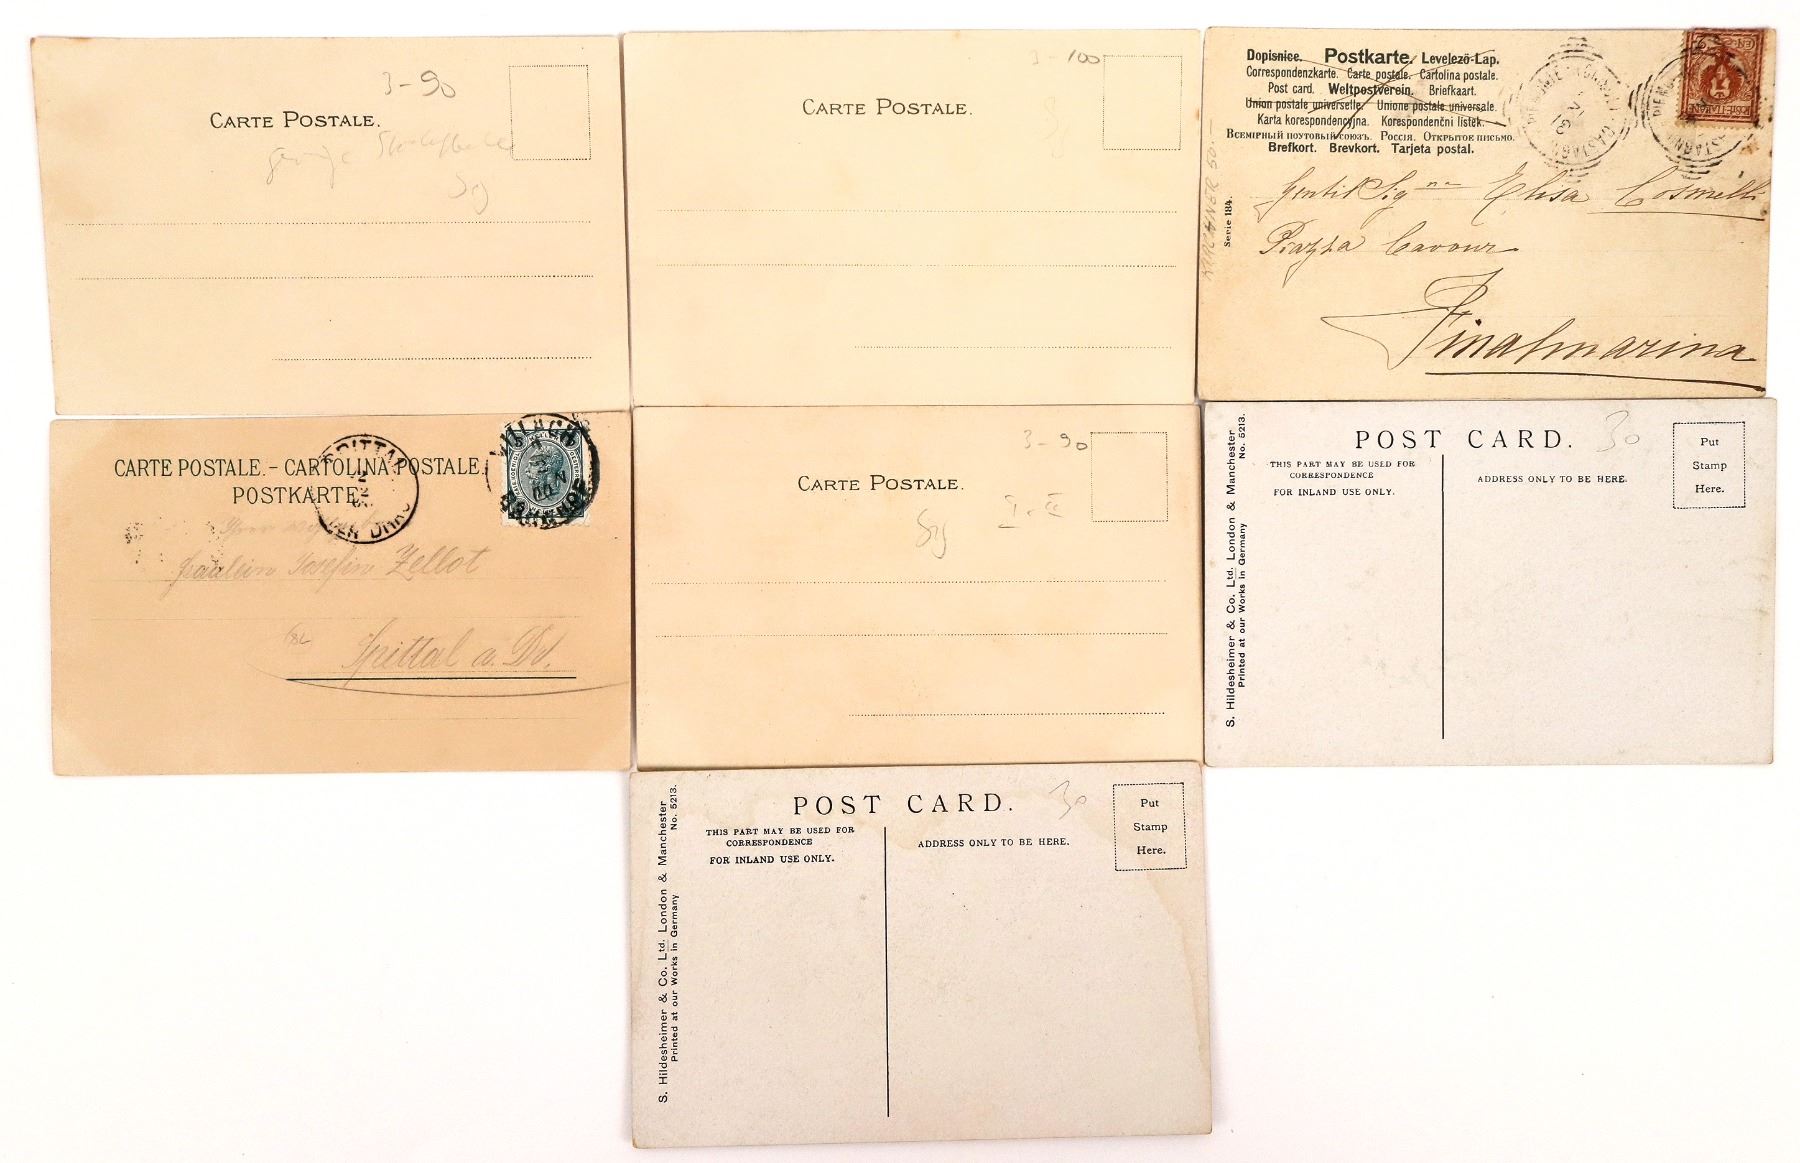 3-90
CARTE POSTALE.
3-100
CARTE POSTALE.
Dopisnice. Postkarte. Levelező-Lap.
Correspondenzkarte. Carte postale. Cartolina postale.
Post card. Weltpostverein. Briefkaart.
Union postale universelle. Unione postale universale.
Karta korespondencyjna. Korespondenční lístek.
Всемірный почтовый союзъ. Россія. Открытое письмо.
Brefkort. Brevkort. Tarjeta postal.
Serie 184.
KIRCHNER 50.—
Gentil Sigⁿᵃ Elisa Cosmelli
Piazza Cavour
Finalmarina
CARTE POSTALE. - CARTOLINA POSTALE.
POSTKARTE.
VILLACH
BAHNHOF
SPITTAL
Fräulein Josefin Zellot
Spittal a. Dr.
3-90
CARTE POSTALE.
POST CARD.
30
Put
Stamp
Here.
THIS PART MAY BE USED FOR
CORRESPONDENCE
FOR INLAND USE ONLY.
ADDRESS ONLY TO BE HERE.
S. Hildesheimer & Co. Ltd. London & Manchester
No. 5213.
Printed at our Works in Germany
POST CARD.
30
Put
Stamp
Here.
THIS PART MAY BE USED FOR
CORRESPONDENCE
FOR INLAND USE ONLY.
ADDRESS ONLY TO BE HERE.
S. Hildesheimer & Co. Ltd. London & Manchester
No. 5213.
Printed at our Works in Germany